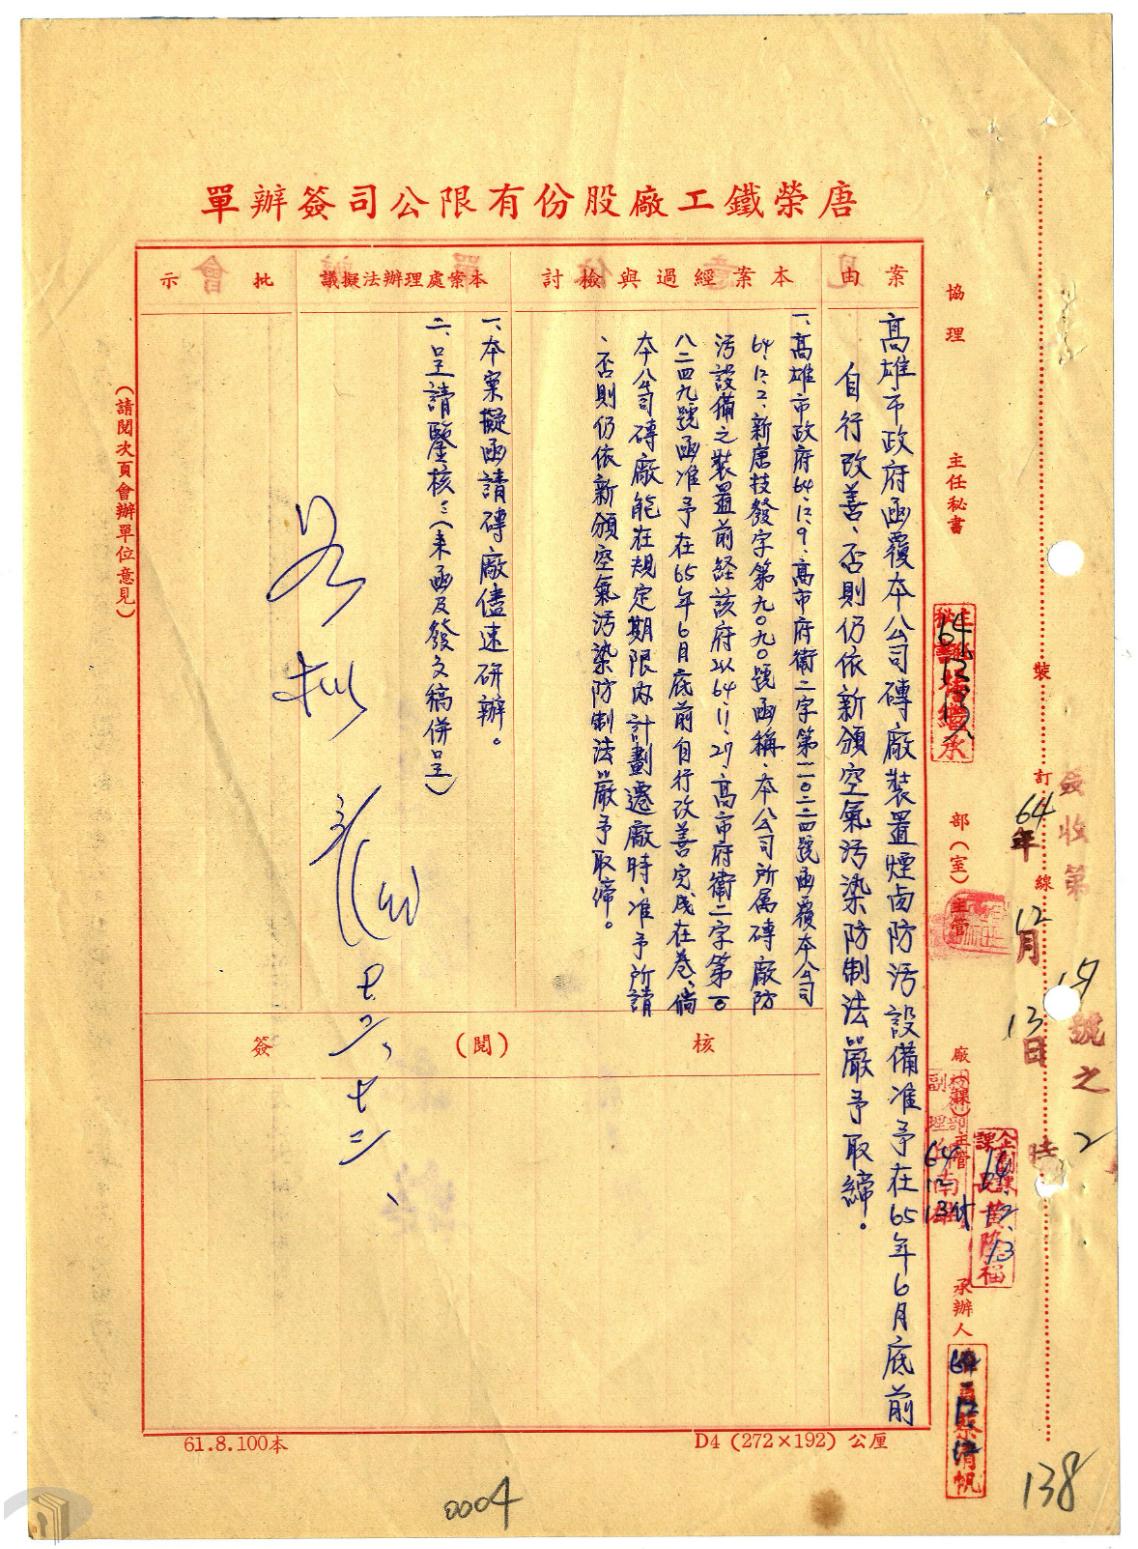 唐榮鐵工廠股份有限公司簽辦單
案由
高雄市政府函覆本公司磚廠裝置煙囱防污設備准予在65年6月底前
自行改善、否則仍依新頒空氣污染防制法嚴予取締。
本案經過與檢討
一、高雄市政府64.12.9、高市府衛二字第一一〇二二四號函覆本公司
64.12.2、新唐技發字第九〇九〇號函稱、本公司所属磚廠防
污設備之裝置前経該府以64.11.27、高市府衛二字第一〇
八二四九號函准予在65年6月底前自行改善完成在卷、倘
本公司磚廠能在規定期限内計劃遷廠時、准予所請
、否則仍依新頒空氣污染防制法嚴予取締。
本案處理辦法擬議
一、本案擬函請磚廠儘速研辦。
二、呈請鑒核：（来函及發文稿併呈）
批示
核
（閱）
簽
（請閱次頁會辦單位意見）
協理
主任秘書
部（室）主管
廠（課）主管
承辦人
裝
訂
線
簽收第
號之2
64年12月13日
時
企劃課
課長黃
64.12.13
64
12
13
61.8.100本
D4 (272×192) 公厘
0004
138